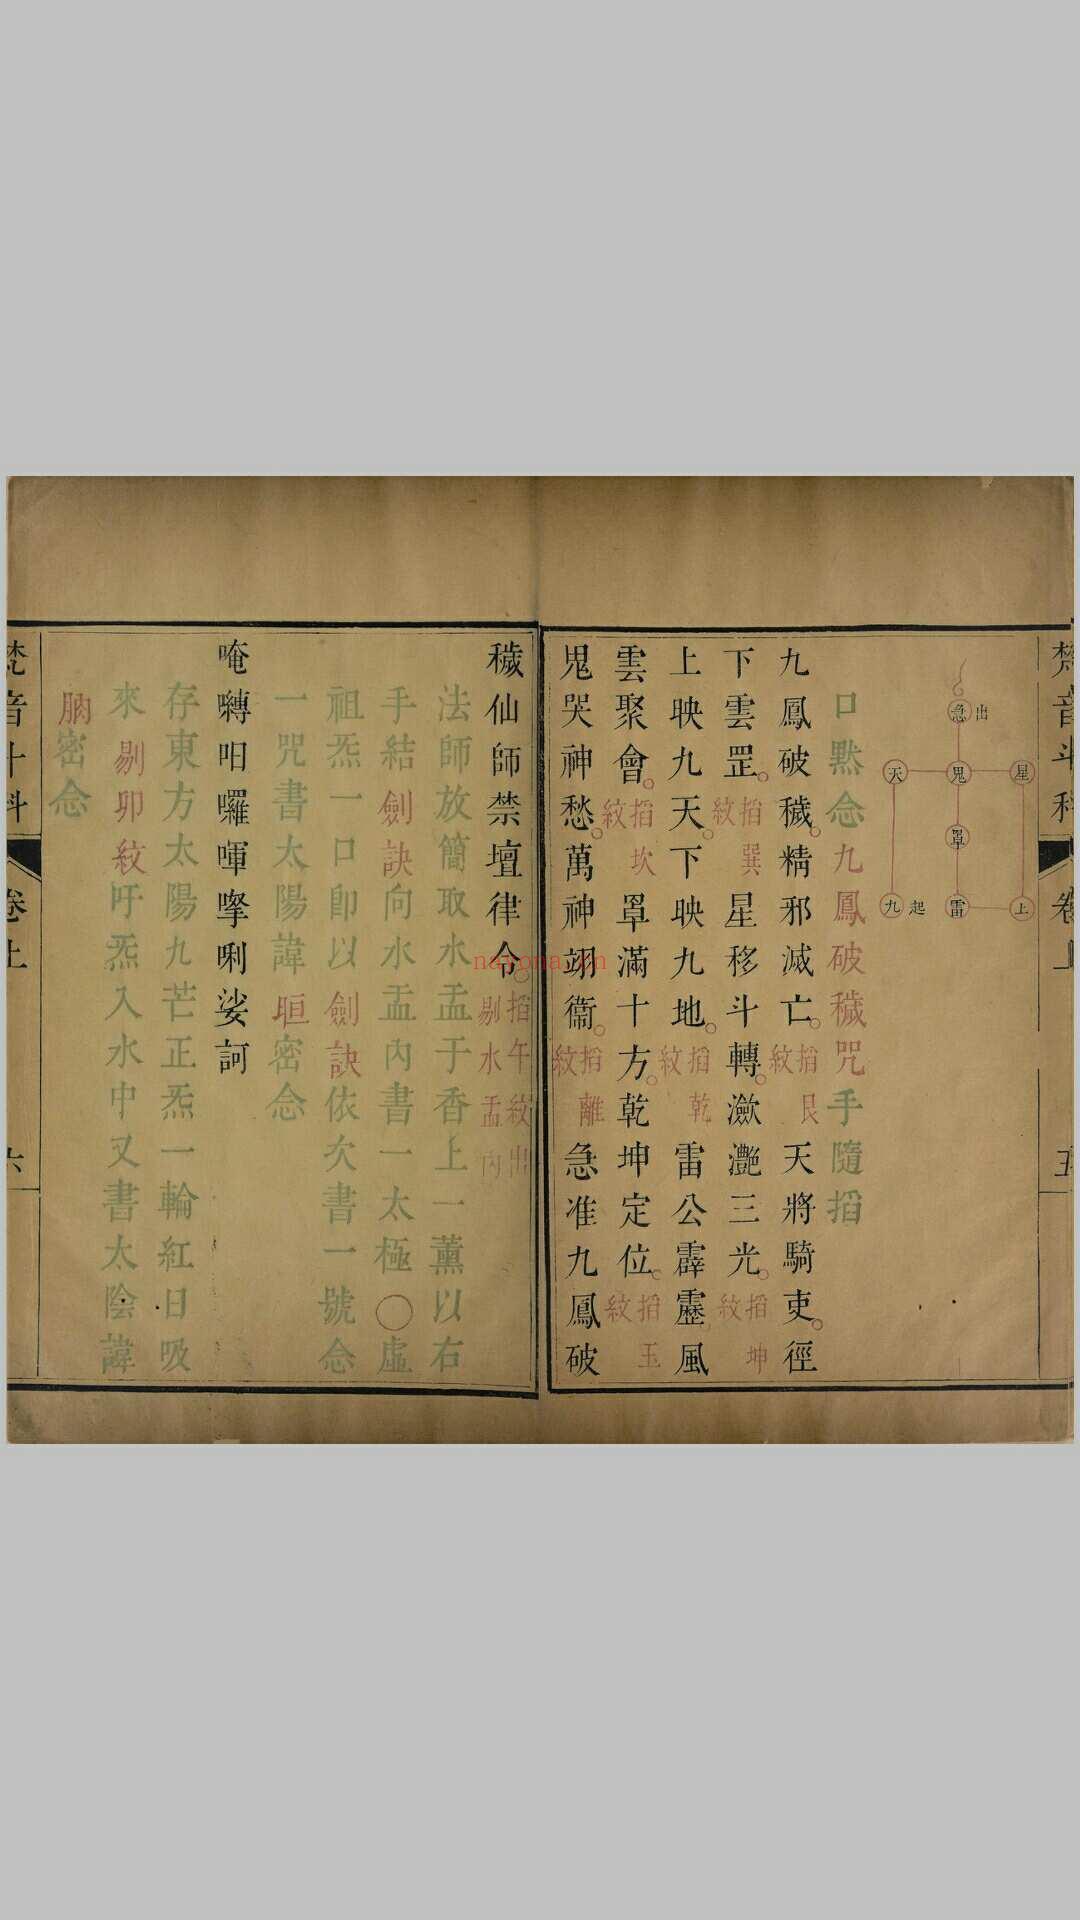 梵音斗科
卷上
五
急 出
天 鬼 星
罩
九 起 雷 上
口默念九鳳破穢咒手隨搯
九鳳破穢。精邪滅亡。搯艮紋天將騎吏。徑
下雲罡。搯巽紋星移斗轉。瀲灧三光。搯坤紋
上映九天。下映九地。搯乾紋雷公霹靂。風
雲聚會。搯坎紋罩滿十方。乾坤定位。搯玉紋
鬼哭神愁。萬神翊衞。搯離紋急准九鳳破
穢仙師禁壇律令。搯午紋出剔水盂內
法師放簡取水盂于香上一薰以右
手結劍訣向水盂內書一太極〇虛
祖炁一口卽以劍訣依次書一號念
一咒書太陽諱晅密念
唵嚩呬囉㗃㨗唎娑訶
存東方太陽九芒正炁一輪紅日吸
來剔卯紋吁炁入水中又書太陰諱
朒密念
梵音斗科
卷上
六
nayona.cn